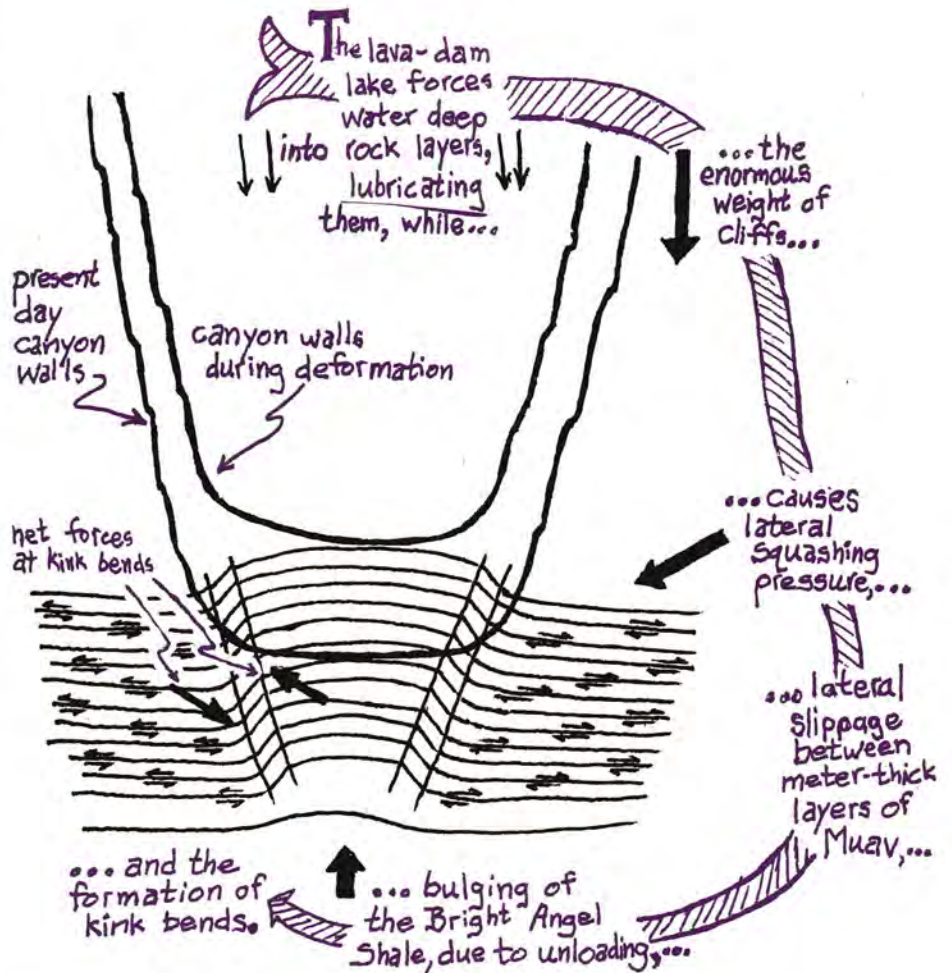 The lava-dam
lake forces
water deep
into rock layers,
lubricating
them, while...
...the
enormous
weight of
cliffs...
present
day
canyon
walls
canyon walls
during deformation
...causes
lateral
squashing
pressure,...
net forces
at kink bends
...lateral
slippage
between
meter-thick
layers of
Muav,...
...bulging of
the Bright Angel
Shale, due to unloading,...
...and the
formation of
kink bends.